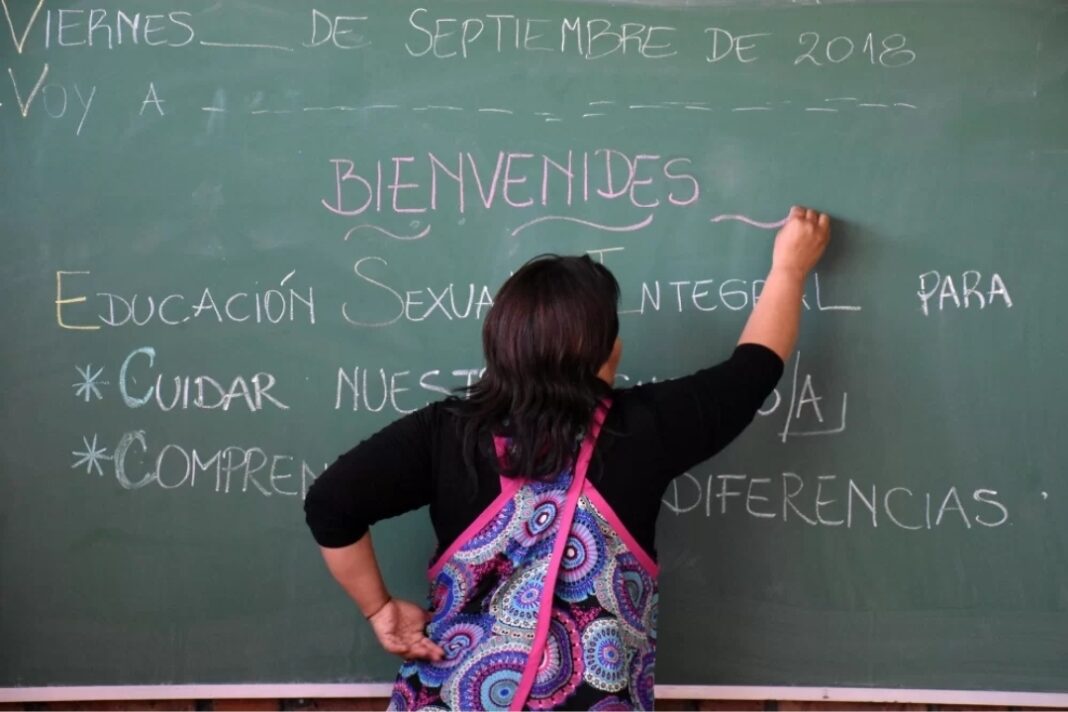 VIERNES__ DE SEPTIEMBRE DE 2018
VOY A _ _ _ _ _ _ _ _ _ _ _ _
BIENVENIDES
EDUCACIÓN SEXUAL INTEGRAL PARA
* CUIDAR
* DIFERENCIAS